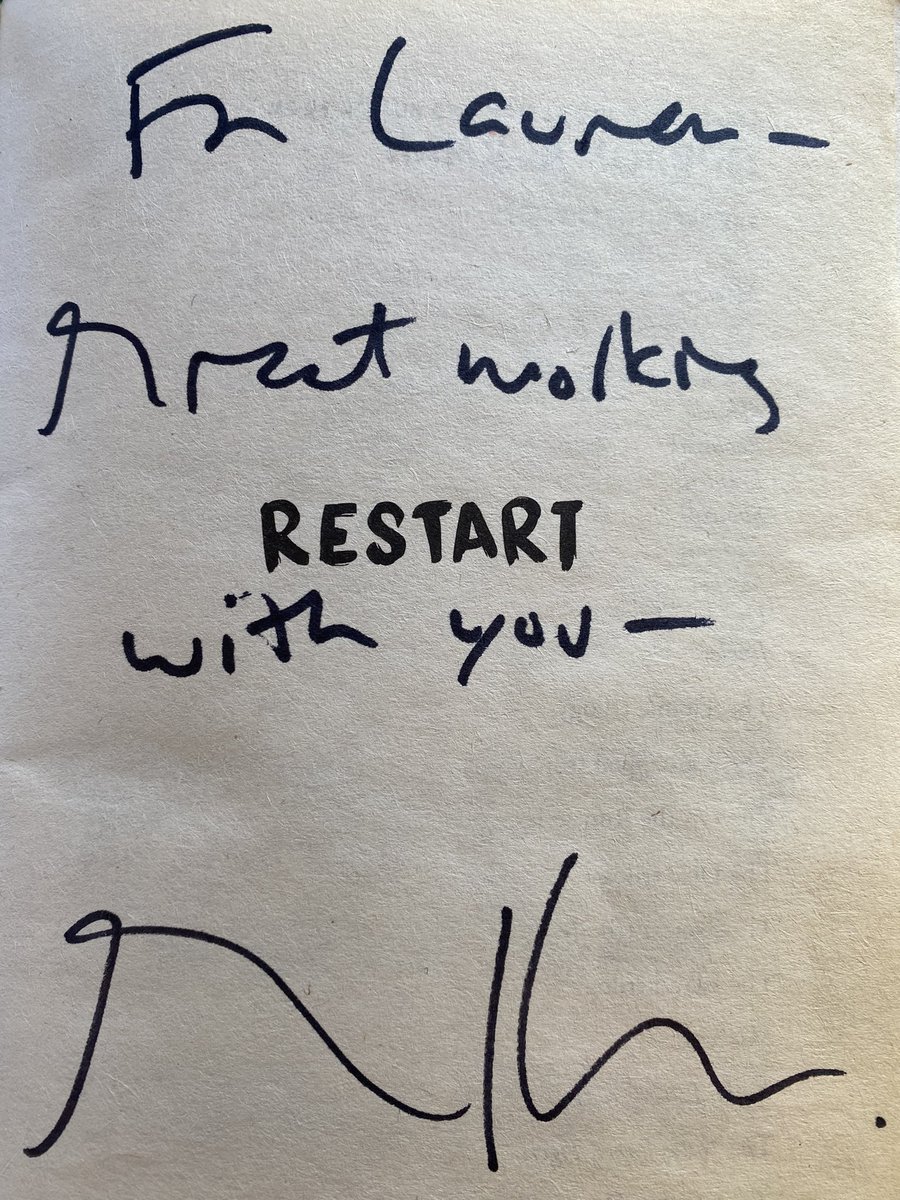 For Lauren —
Great working
RESTART
with you —